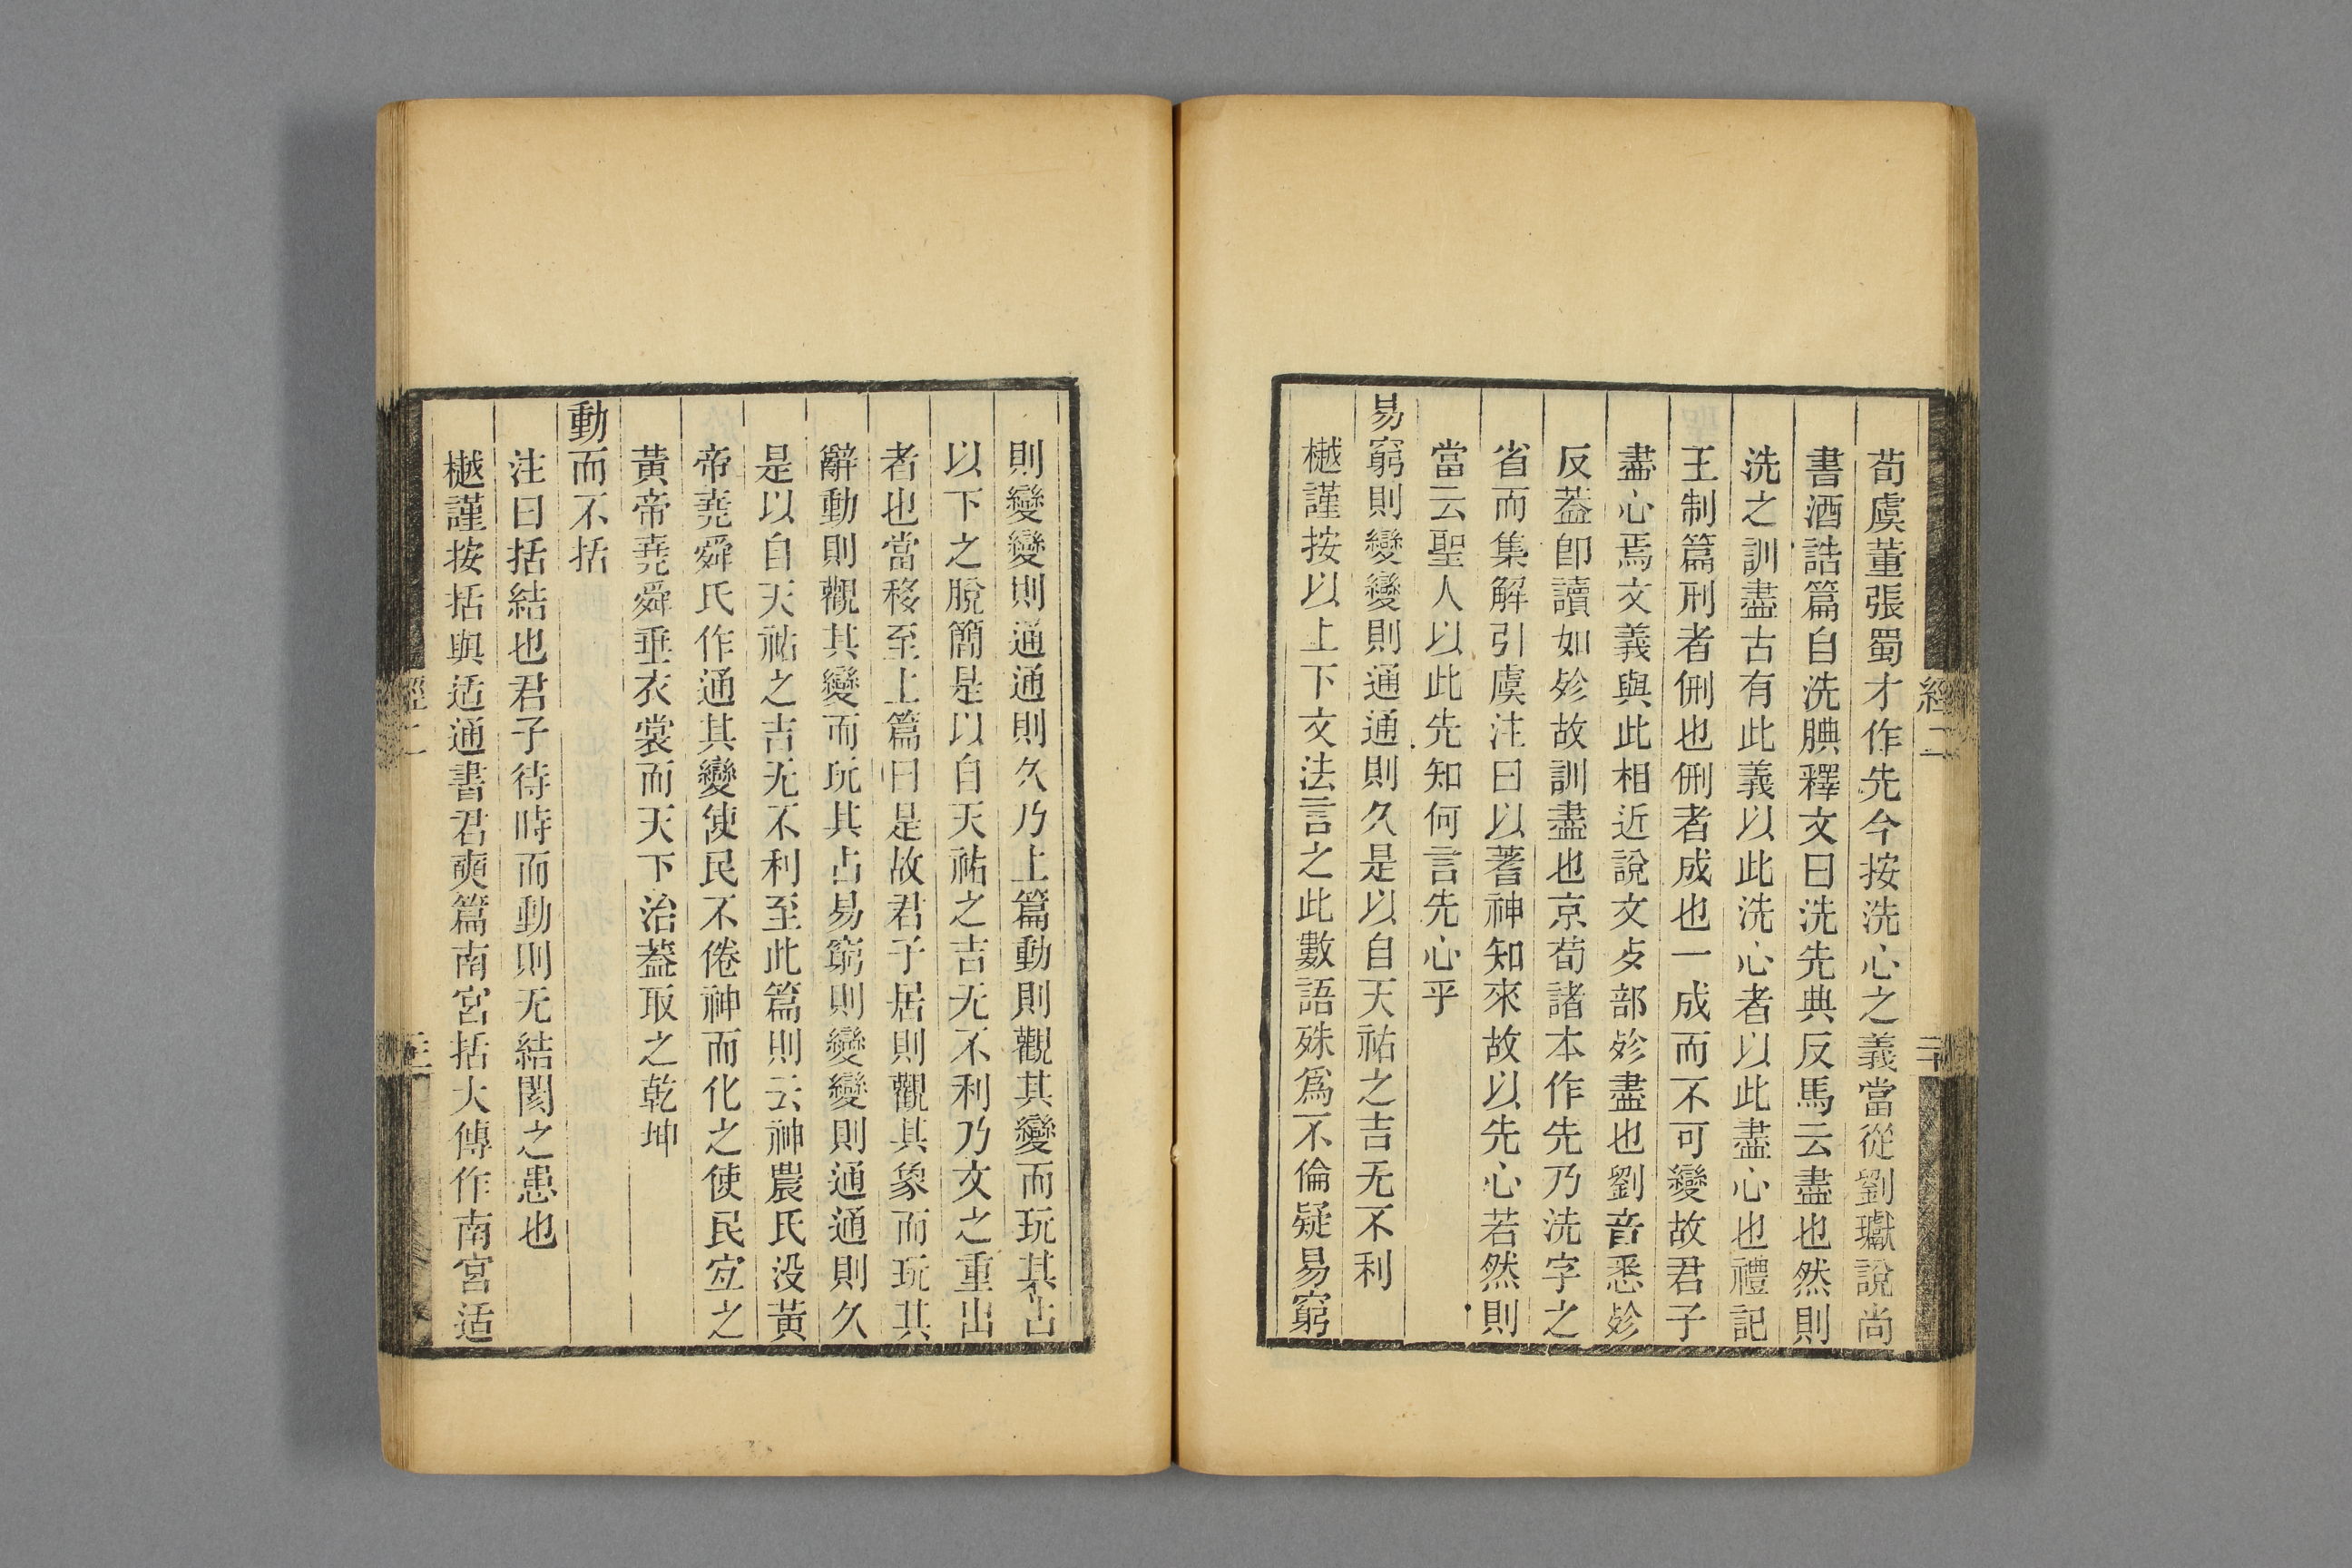 荀虞董張蜀才作先今按洗心之義當從劉瓛說尚
書酒誥篇自洗腆釋文曰洗先典反馬云盡也然則
洗之訓盡古有此義以此洗心者以此盡心也禮記
王制篇刑者侀也侀者成也一成而不可變故君子
盡心焉文義與此相近說文歺部殄盡也劉音悉殄
反葢卽讀如殄故訓盡也京荀諸本作先乃洗字之
省而集解引虞注曰以蓍神知來故以先心若然則
當云聖人以此先知何言先心乎
易窮則變變則通通則久是以自天祐之吉无不利
樾謹按以上下文法言之此數語殊爲不倫疑易窮
經二
則變變則通通則久乃上篇動則觀其變而玩其占
以下之脫簡是以自天祐之吉无不利乃文之重出
者也當移至上篇曰是故君子居則觀其象而玩其
辭動則觀其變而玩其占易窮則變變則通通則久
是以自天祐之吉无不利至此篇則云神農氏没黃
帝堯舜氏作通其變使民不倦神而化之使民宜之
黃帝堯舜垂衣裳而天下治葢取之乾坤
動而不括
注曰括結也君子待時而動則无結閡之患也
樾謹按括與适通書君奭篇南宮括大傳作南宮适
經二